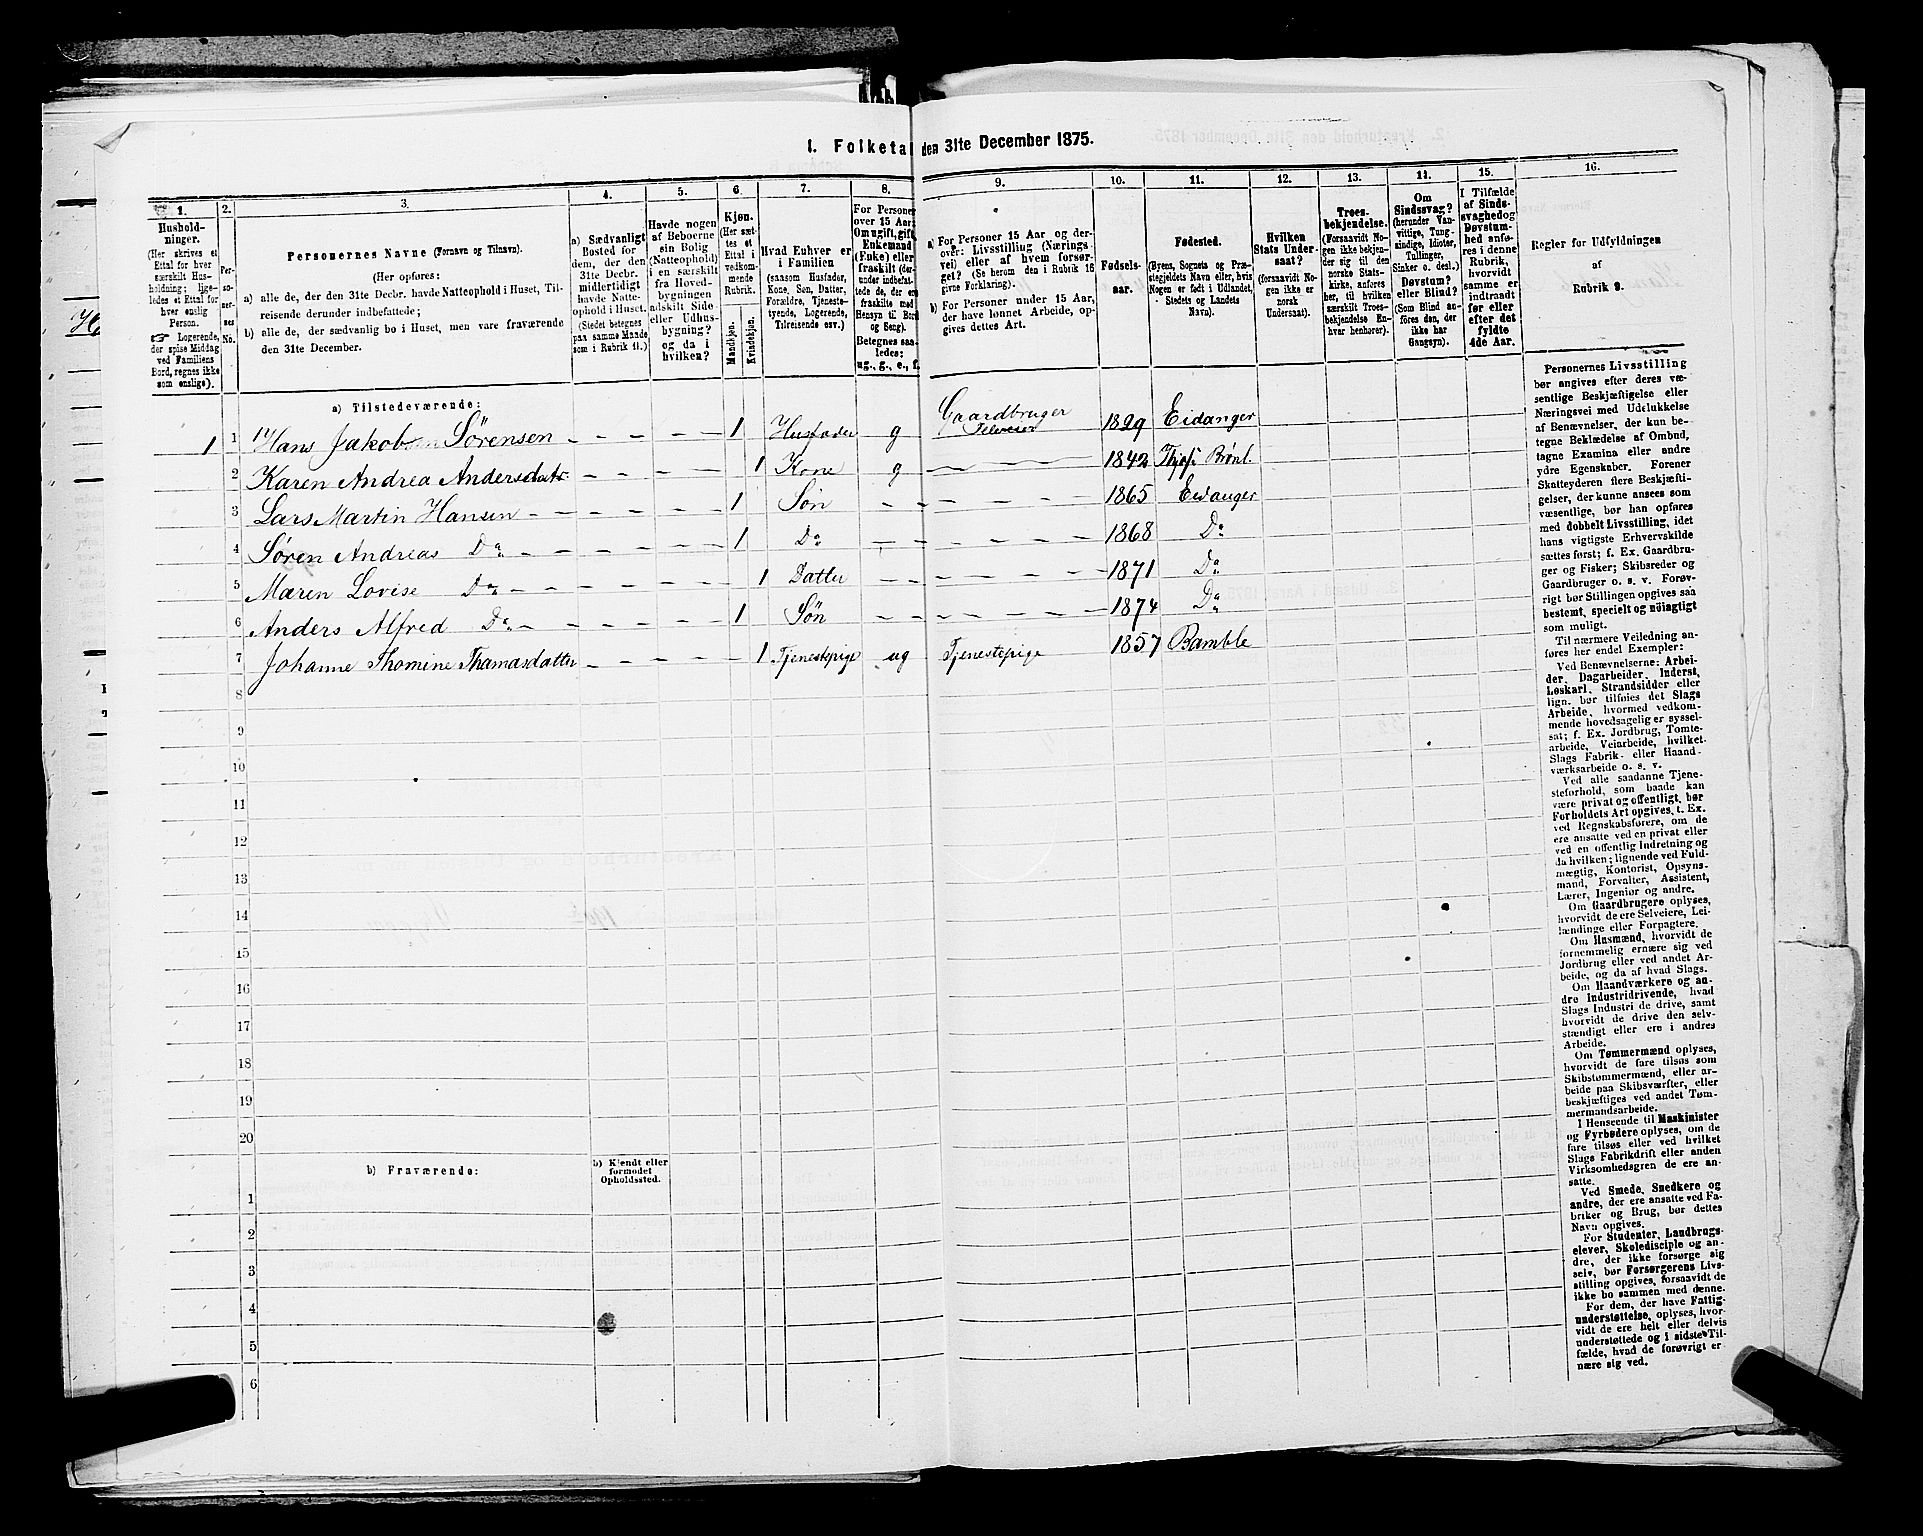 I. Folketa den 31te December 1875.
1. 2. 3. 4. 5. 6. 7. 8. 9. 10. 11. 12. 13. 14. 15. 16.
Hushold-
ninger.
(Her skrives et
Ettal for hver
særskilt Hus-
holdning; lige-
ledes et Ettal for
hver enslig
Person.
Logerende,
der spise Middag
ved Familiens
Bord, regnes ikke
som enslige).
Per-
so-
ner-
nes
No.
Personernes Navne (Fornavn og Tilnavn).
(Her opføres:
a) alle de, der den 31te Decbr. havde Natteophold i Huset, Til-
reisende derunder indbefattede;
b) alle de, der sædvanlig bo i Huset, men vare fraværende
den 31te December.
a) Sædvanligt
Bosted for
dem, der den
31te Decbr.
midlertidigt
havde Natte-
ophold i Huset.
(Stedet betegnes
paa samme Maade
som i Rubrik 11.)
Havde nogen
af Beboerne
sin Bolig
(Natteophold)
i en særskilt
fra Hoved-
bygningen
adskilt Side
eller Udhus-
bygning?
og da i
hvilken?
Kjøn.
(Her sæt-
tes et
Ettal i
vedkom-
mende
Rubrik.)
Mandkjøn.
Kvindekjøn.
Hvad Enhver er
i Familien
(saasom Husfader,
Kone, Søn, Datter,
Forældre, Tjeneste-
tyende, Logerende,
Tilreisende osv.)
For Personer
over 15 Aar:
Om ugift, gift,
Enkemand
(Enke) eller
fraskilt (der-
under indbefat-
tede de, der ere
fraskilte med
Hensyn til Bord
og Seng).
Betegnes saa-
ledes:
ug., g., e., f.
a) For Personer 15 Aar og der-
over: Livsstilling (Nærings-
vei) eller af hvem forsør-
get? (Se herom den i Rubrik 16
givne Forklaring).
b) For Personer under 15 Aar,
der have lønnet Arbeide, op-
gives dettes Art.
Fødsels-
aar.
Fødested.
(Byens, Sognets og Præ-
stegjeldets Navn eller, hvis
Nogen er født i Udlandet,
Stedets og Landets
Navn).
Hvilken
Stats Under-
saat?
(forsaavidt No-
gen ikke er
norsk
Undersaat).
Troes-
bekjendelse.
(Forsaavidt No-
gen ikke bekjen-
der sig til den
norske Stats-
kirke, anføres
her, til hvilken
særskilt Troes-
bekjendelse En-
hver henhører).
Om
Sindssvag?
(herunder Van-
vittige, Tung-
sindige, Idioter,
Tullinger,
Sinker o. desl.)
Døvstum?
eller Blind?
(Som Blind an-
føres den, der
ikke har
Gangsyn).
I Tilfælde
af Sinds-
svaghed og
Døvstum-
hed anfø-
res i denne
Rubrik,
hvorvidt
samme er
indtraadt
før eller
efter det
fyldte
4de Aar.
Regler for Udfyldningen
af
Rubrik 9.
a) Tilstedeværende:
1 1 Hans Jakob Sørensen 1 Husfader g Gaardbruger Selveier 1829 Eidanger
2 Karen Andrea Andersdatr. 1 Kone g 1842 Brønl.
3 Lars Martin Hansen 1 Søn 1865 Eidanger
4 Søren Andreas Do 1 Do 1868 Do
5 Maren Lovise Do 1 Datter 1871 Do
6 Anders Alfred Do 1 Søn 1874 Do
7 Johanne Thomine Thomasdatter 1 Tjenestepige ug Tjenestepige 1857 Bamble
8
9
10
11
12
13
14
15
16
17
18
19
20
b) Fraværende:
b) Kjendt eller
formodet
Opholdssted.
1
2
3
4
5
6
Personernes Livsstilling
bør angives efter deres væ-
sentlige Beskjæftigelse eller
Næringsvei med Udelukkelse
af Benævnelser, der kun be-
tegne Beklædelse af Ombud,
tagne Examina eller andre
ydre Egenskaber. Forener
Skatteyderen flere Beskjæfti-
gelser, der kunne ansees som
væsentlige, bør han opføres
med dobbelt Livsstilling, idet
hans vigtigste Erhvervskilde
sættes først; f. Ex. Gaardbru-
ger og Fisker; Skibsreder og
Gaardbruger o. s. v. Forøv-
rigt bør Stillingen opgives saa
bestemt, specielt og nøiagtigt
som muligt.
Til nærmere Veiledning an-
føres her endel Exempler:
Ved Benævnelserne: Arbei-
der, Dagarbeider, Inderst,
Løskarl, Strandsidder eller
lign. bør tilføies det Slags
Arbeide, hvormed vedkom-
mende hovedsagelig er syssel-
sat; f. Ex. Jordbrug, Tomte-
arbeide, Veiarbeide, hvilket
Slags Fabrik- eller Haand-
værksarbeide o. s. v.
Ved alle saadanne Tjene-
steforhold, som baade kan
være privat og offentligt, bør
Forholdets Art opgives, t. Ex.
ved Regnskabsførere, om de
ere ansatte ved en privat eller
ved en offentlig Indretning og
da hvilken; lignende ved Fuld-
mægtig, Kontorist, Opsyns-
mand, Forvalter, Assistent,
Lærer, Ingeniør og andre.
Om Gaardbrugere oplyses,
hvorvidt de ere Selveiere, Lei-
lændinge eller Forpagtere.
Om Husmænd, hvorvidt de
fornemmelig ernære sig ved
Jordbrug eller ved andet Ar-
beide, og da af hvad Slags.
Om Haandværkere og an-
dre Industridrivende, hvad
Slags Industri de drive, samt
hvorvidt de drive den selv-
stændigt eller ere i andres
Arbeide.
Om Tømmermænd oplyses,
hvorvidt de fare tilsøs som
Skibstømmermænd, eller ar-
beide paa Skibsværfter, eller
beskjæftiges ved andet Tøm-
mermandsarbeide.
I Henseende til Maskinister
og Fyrbødere oplyses, om de
fare tilsøs eller ved hvilket
Slags Fabrikdrift eller anden
Virksomhedsgren de ere an-
satte.
Ved Smede, Snedkere og
andre, der ere ansatte ved Fa-
briker og Brug, bør dettes
Navn opgives.
For Studenter, Landbrugs-
elever, Skoledisciple og an-
dre, der ikke forsørge sig
selv, bør Forsørgerens Livs-
stilling opgives, forsaavidt de
ikke bo sammen med denne.
For dem, der have Fattig-
understøttelse, oplyses, hvor-
vidt de ere helt eller delvis
understøttede og i sidste Til-
fælde, hvad de forøvrigt er
nære sig ved.